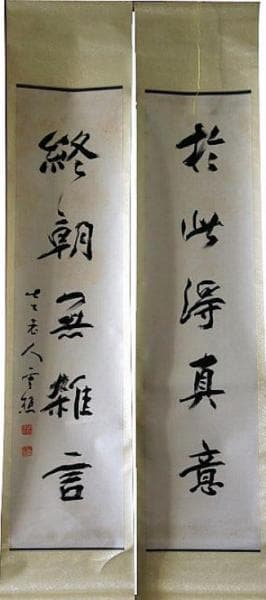 於此得真意
終朝無雜言